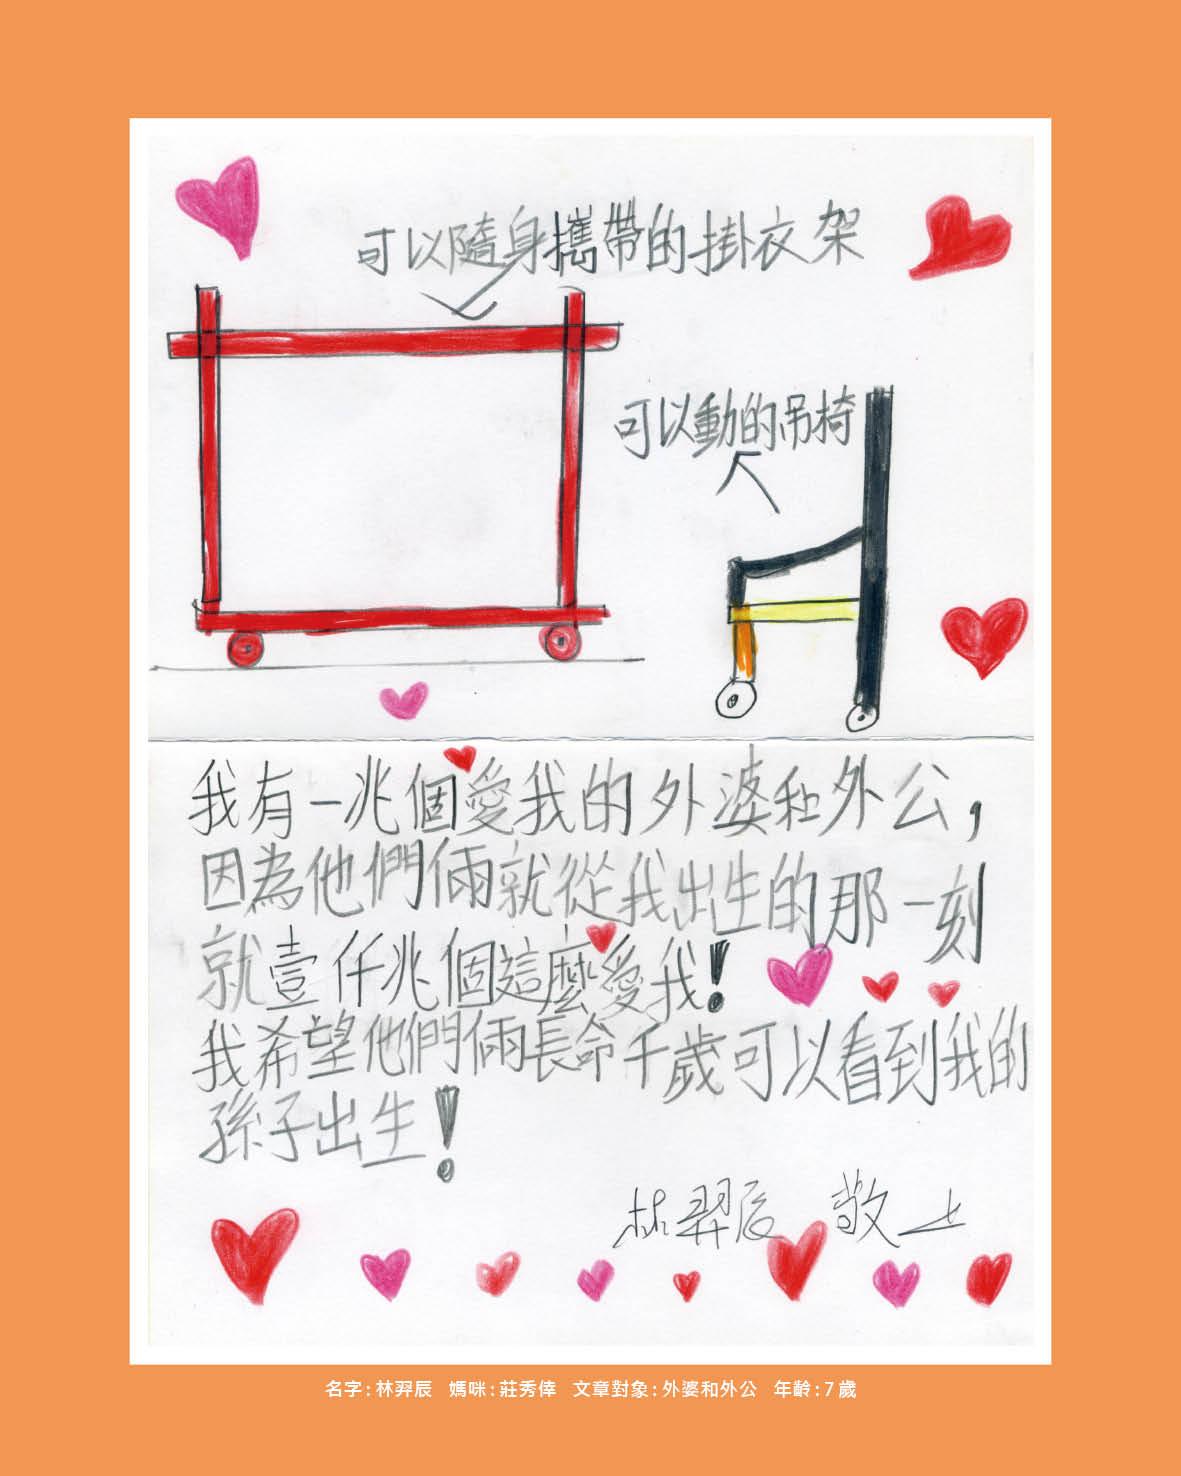 可以隨身攜帶的掛衣架
可以動的吊椅
我有一兆個愛我的外婆和外公,
因為他們倆就從我出生的那一刻
就壹仟兆個這麼愛我!
我希望他們倆長命千歲可以看到我的
孫子出生!
林羿辰 敬上
名字:林羿辰 媽咪:莊秀倖 文章對象:外婆和外公 年齡:7歲